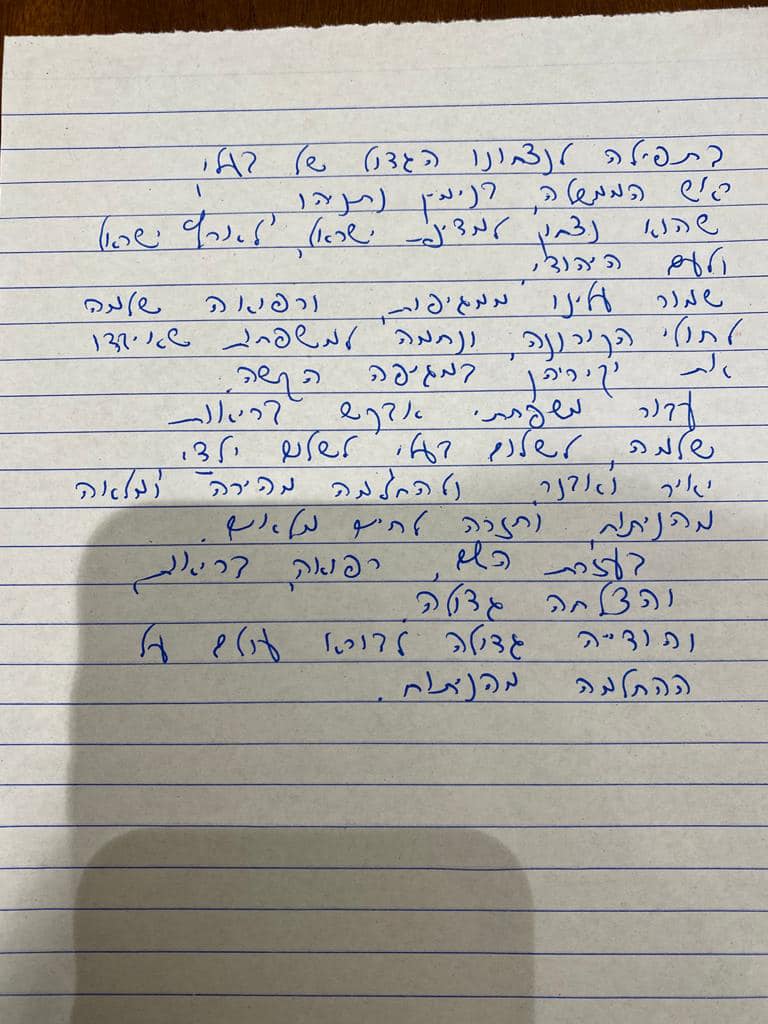 בתפילה לנצחונו הגדול של בעלי
ראש הממשלה, בנימין נתניהו
שהוא נצחון למדינת ישראל, לארץ ישראל
ולעם היהודי,
שמור עלינו ממגיפות, ורפואה שלמה
לחולי הקורונה, ונחמה למשפחות שאיבדו
את יקיריהן במגיפה הקשה.
עבור משפחתי אבקש בריאות
שלמה, לשלום בעלי לשלום ילדי,
יאיר ואבנר, ולהחלמה מהירה ומלאה
מהניתוח, וחזרה לחיים מלאים.
בעזרת השם, רפואה, בריאות
והצלחה גדולה.
ותודייה גדולה לבורא עולם על
ההחלמה מהניתוח.